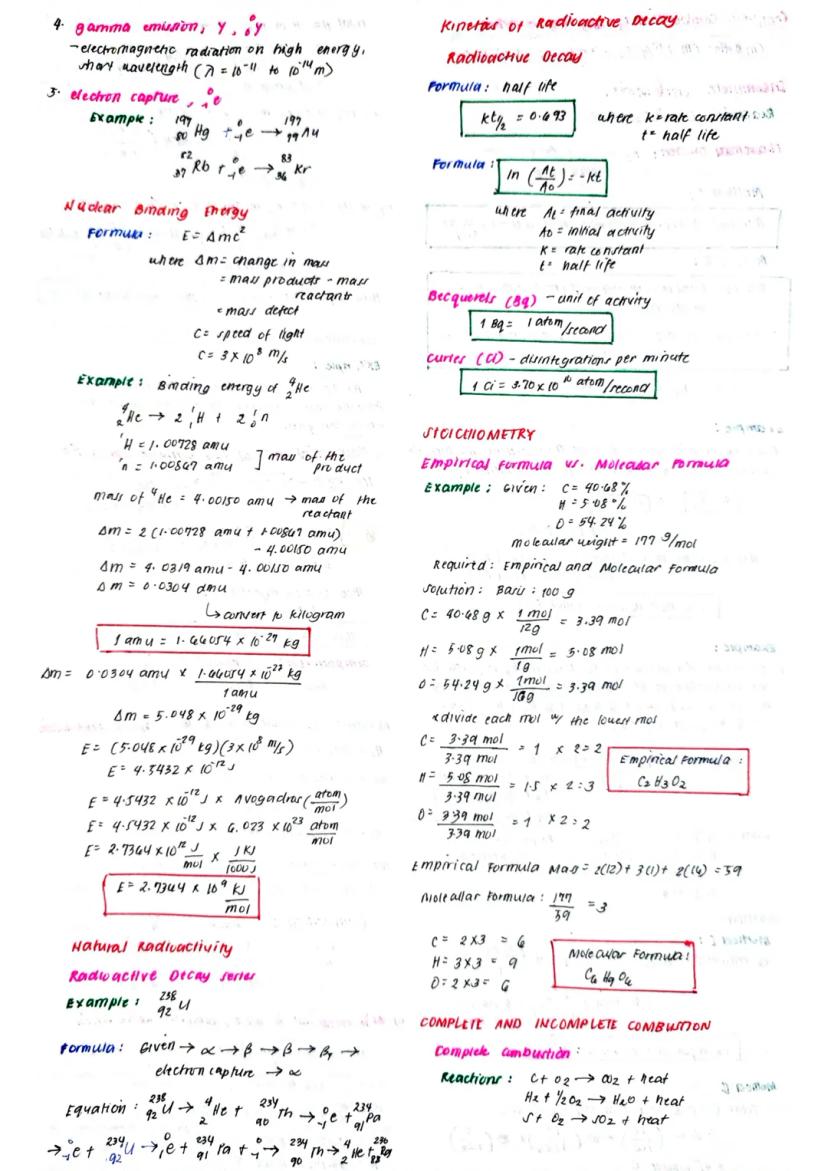 4. gamma emission, γ, ⁰₀γ
-electromagnetic radiation on high energy,
short wavelength (λ = 10⁻¹¹ to 10⁻¹⁴m)
5. electron capture, ⁰₋₁e
Example: ¹⁹⁷₈₀Hg + ⁰₋₁e → ¹⁹⁷₇₉Au
⁸²₃₇Rb + ⁰₋₁e → ⁸³₃₆Kr
Nuclear Binding Energy
Formula: E = Δmc²
where Δm = change in mass
= mass products - mass
reactants
= mass defect
C = speed of light
C = 3 x 10⁸ m/s
Example: Binding energy of ⁴₂He
⁴₂He → 2 ¹₁H + 2 ¹₀n
¹H = 1.00728 amu
¹n = 1.00867 amu ] mass of the
product
mass of ⁴He = 4.00150 amu → mass of the
reactant
Δm = 2 (1.00728 amu + 1.00867 amu)
- 4.00150 amu
Δm = 4.0319 amu - 4.00150 amu
Δm = 0.0304 amu
↳ convert to kilogram
1 amu = 1.66054 x 10⁻²⁷ kg
Δm = 0.0304 amu x 1.66054 x 10⁻²⁷ kg
1 amu
Δm = 5.048 x 10⁻²⁹ kg
E = (5.048 x 10⁻²⁹ kg)(3 x 10⁸ m/s)
E = 4.5432 x 10⁻¹² J
E = 4.5432 x 10⁻¹² J x Avogadros (atom/mol)
E = 4.5432 x 10⁻¹² J x 6.023 x 10²³ atom/mol
E = 2.7364 x 10¹² J/mol x 1 KJ/1000 J
E = 2.7364 x 10⁹ KJ/mol
Natural Radioactivity
Radioactive Decay series
Example: ²³⁸₉₂U
Formula: Given → α → β → β → β₁ →
electron capture → α
Equation: ²³⁸₉₂U → ⁴₂He + ²³⁴₉₀Th → ⁰₋₁e + ²³⁴₉₁Pa
→ ⁰₋₁e + ²³⁴₉₂U → ⁰₁e + ²³⁴₉₁Pa + ⁰₋₁ → ²³⁴₉₀Th → ⁴₂He + ²³⁰₈₈Ra
Kinetics of Radioactive Decay
Radioactive Decay
Formula: half life
kt½ = 0.693 where k = rate constant
t = half life
Formula: ln (At/A0) = -kt
where At = final activity
A0 = initial activity
K = rate constant
t = half life
Becquerels (Bq) - unit of activity
1 Bq = 1 atom/second
Curies (Ci) - disintegrations per minute
1 Ci = 3.70 x 10¹⁰ atom/second
STOICHIOMETRY
Empirical Formula vs. Molecular Formula
Example: Given: C = 40.68%
H = 5.08%
O = 54.24%
molecular weight = 177 g/mol
Required: Empirical and Molecular Formula
Solution: Basis: 100 g
C = 40.68 g x 1 mol/12g = 3.39 mol
H = 5.08 g x 1mol/1g = 5.08 mol
O = 54.24 g x 1mol/16g = 3.39 mol
*divide each mol w/ the lowest mol
C = 3.39 mol/3.39 mol = 1 x 2 = 2
H = 5.08 mol/3.39 mol = 1.5 x 2 = 3
O = 3.39 mol/3.39 mol = 1 x 2 = 2
Empirical Formula:
C2H3O2
Empirical Formula Mass = 2(12) + 3(1) + 2(16) = 59
Molecular Formula: 177/59 = 3
C = 2 x 3 = 6
H = 3 x 3 = 9
O = 2 x 3 = 6
Molecular Formula:
C6H9O6
COMPLETE AND INCOMPLETE COMBUSTION
Complete combustion:
Reactions: C + O2 → CO2 + heat
H2 + ½O2 → H2O + heat
S + O2 → SO2 + heat